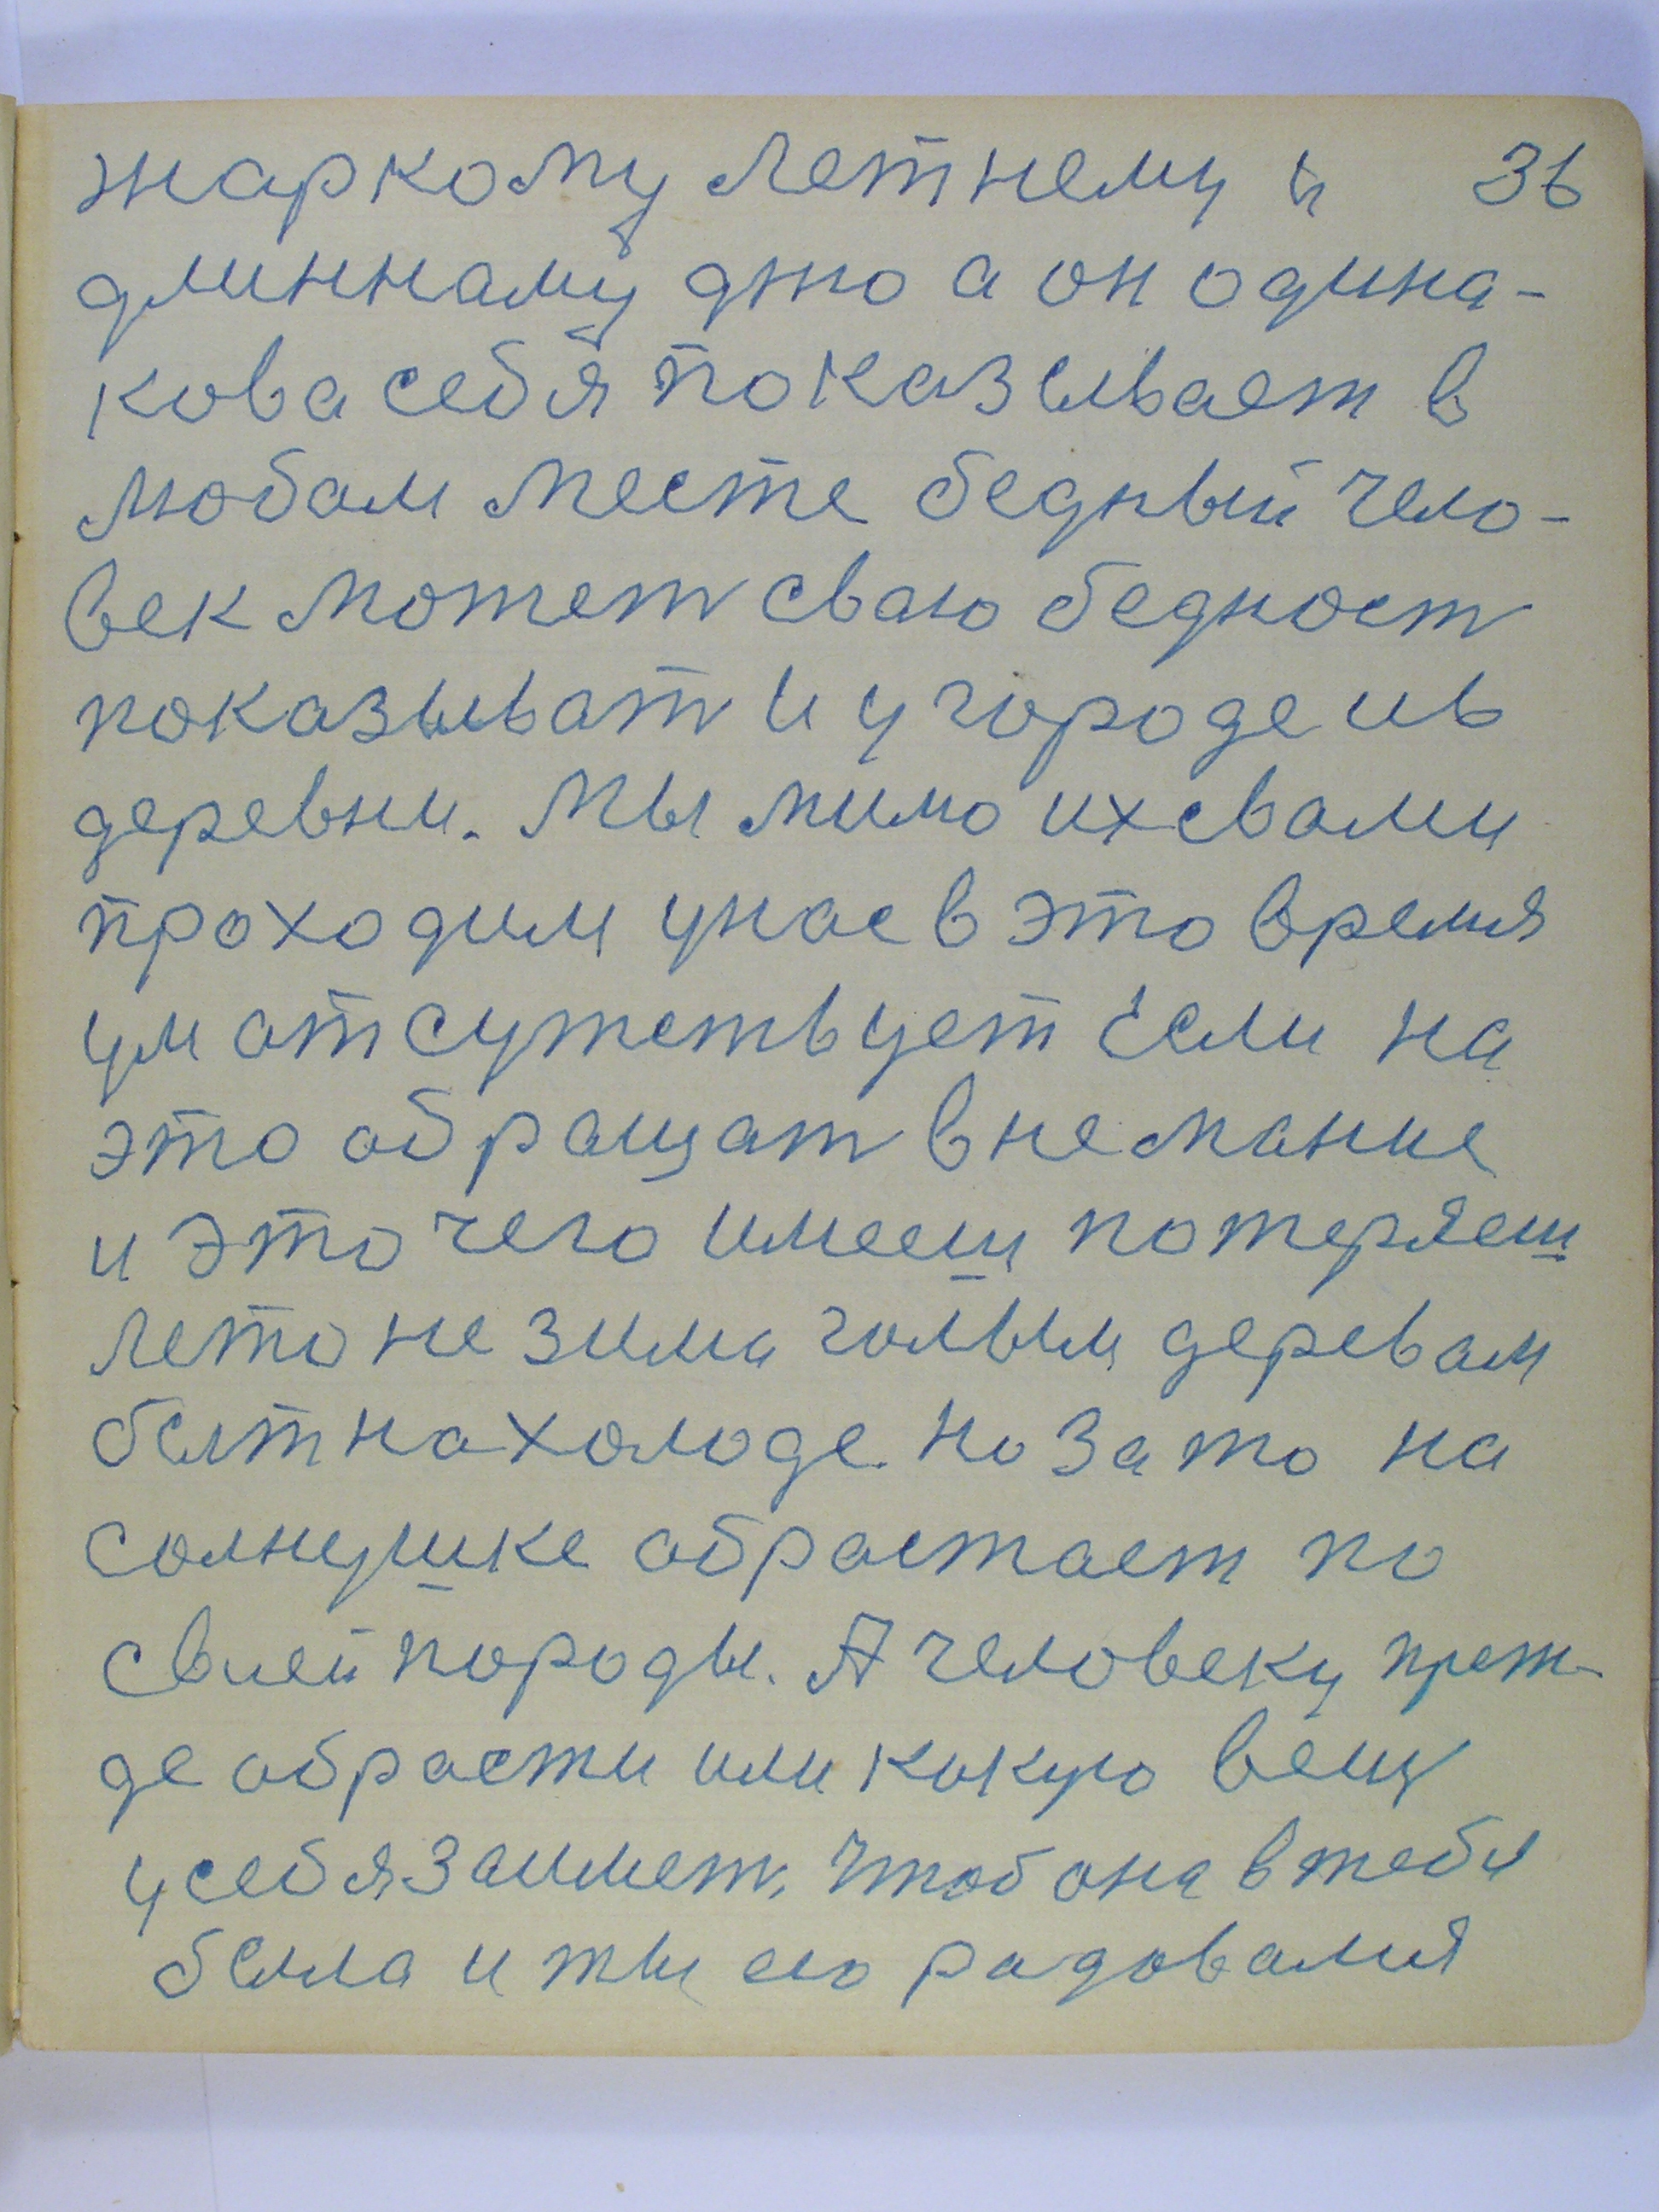 жаркому летнему и 36
длиннаму дню а он одина-
кова себя показывает в
любам месте бедный чело-
векможет сваю бедност
показыват и у городе ив
деревни. Мы мимо ихсвами
проходим унас в это время
ум атсужествует Если на
это абращат внемание
и это чего имееш потеряеш
лето не зима голым деревам
быт на холоде но зато на
солнушке абрастает по
своей породы. А человеку преж-
де абрасти или кокую вещ
у себя заимет, чтоб она в тебя
была и ты ею радовался